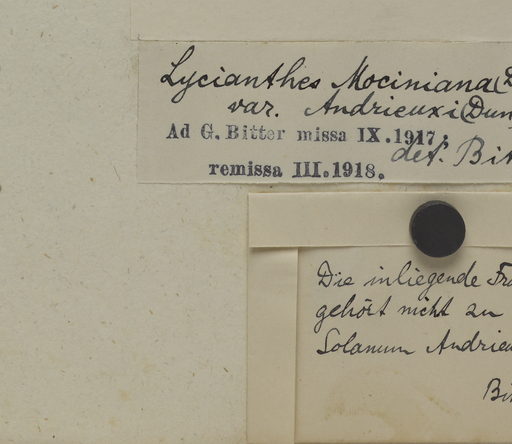 Lycianthes Mociniana (D
var. Andrieuxi (Dun
Ad G. Bitter missa IX.1917;
det. Bit
remissa III.1918.
Die inliegende Fr
gehört nicht zu
Solanum Andrieu
Bit